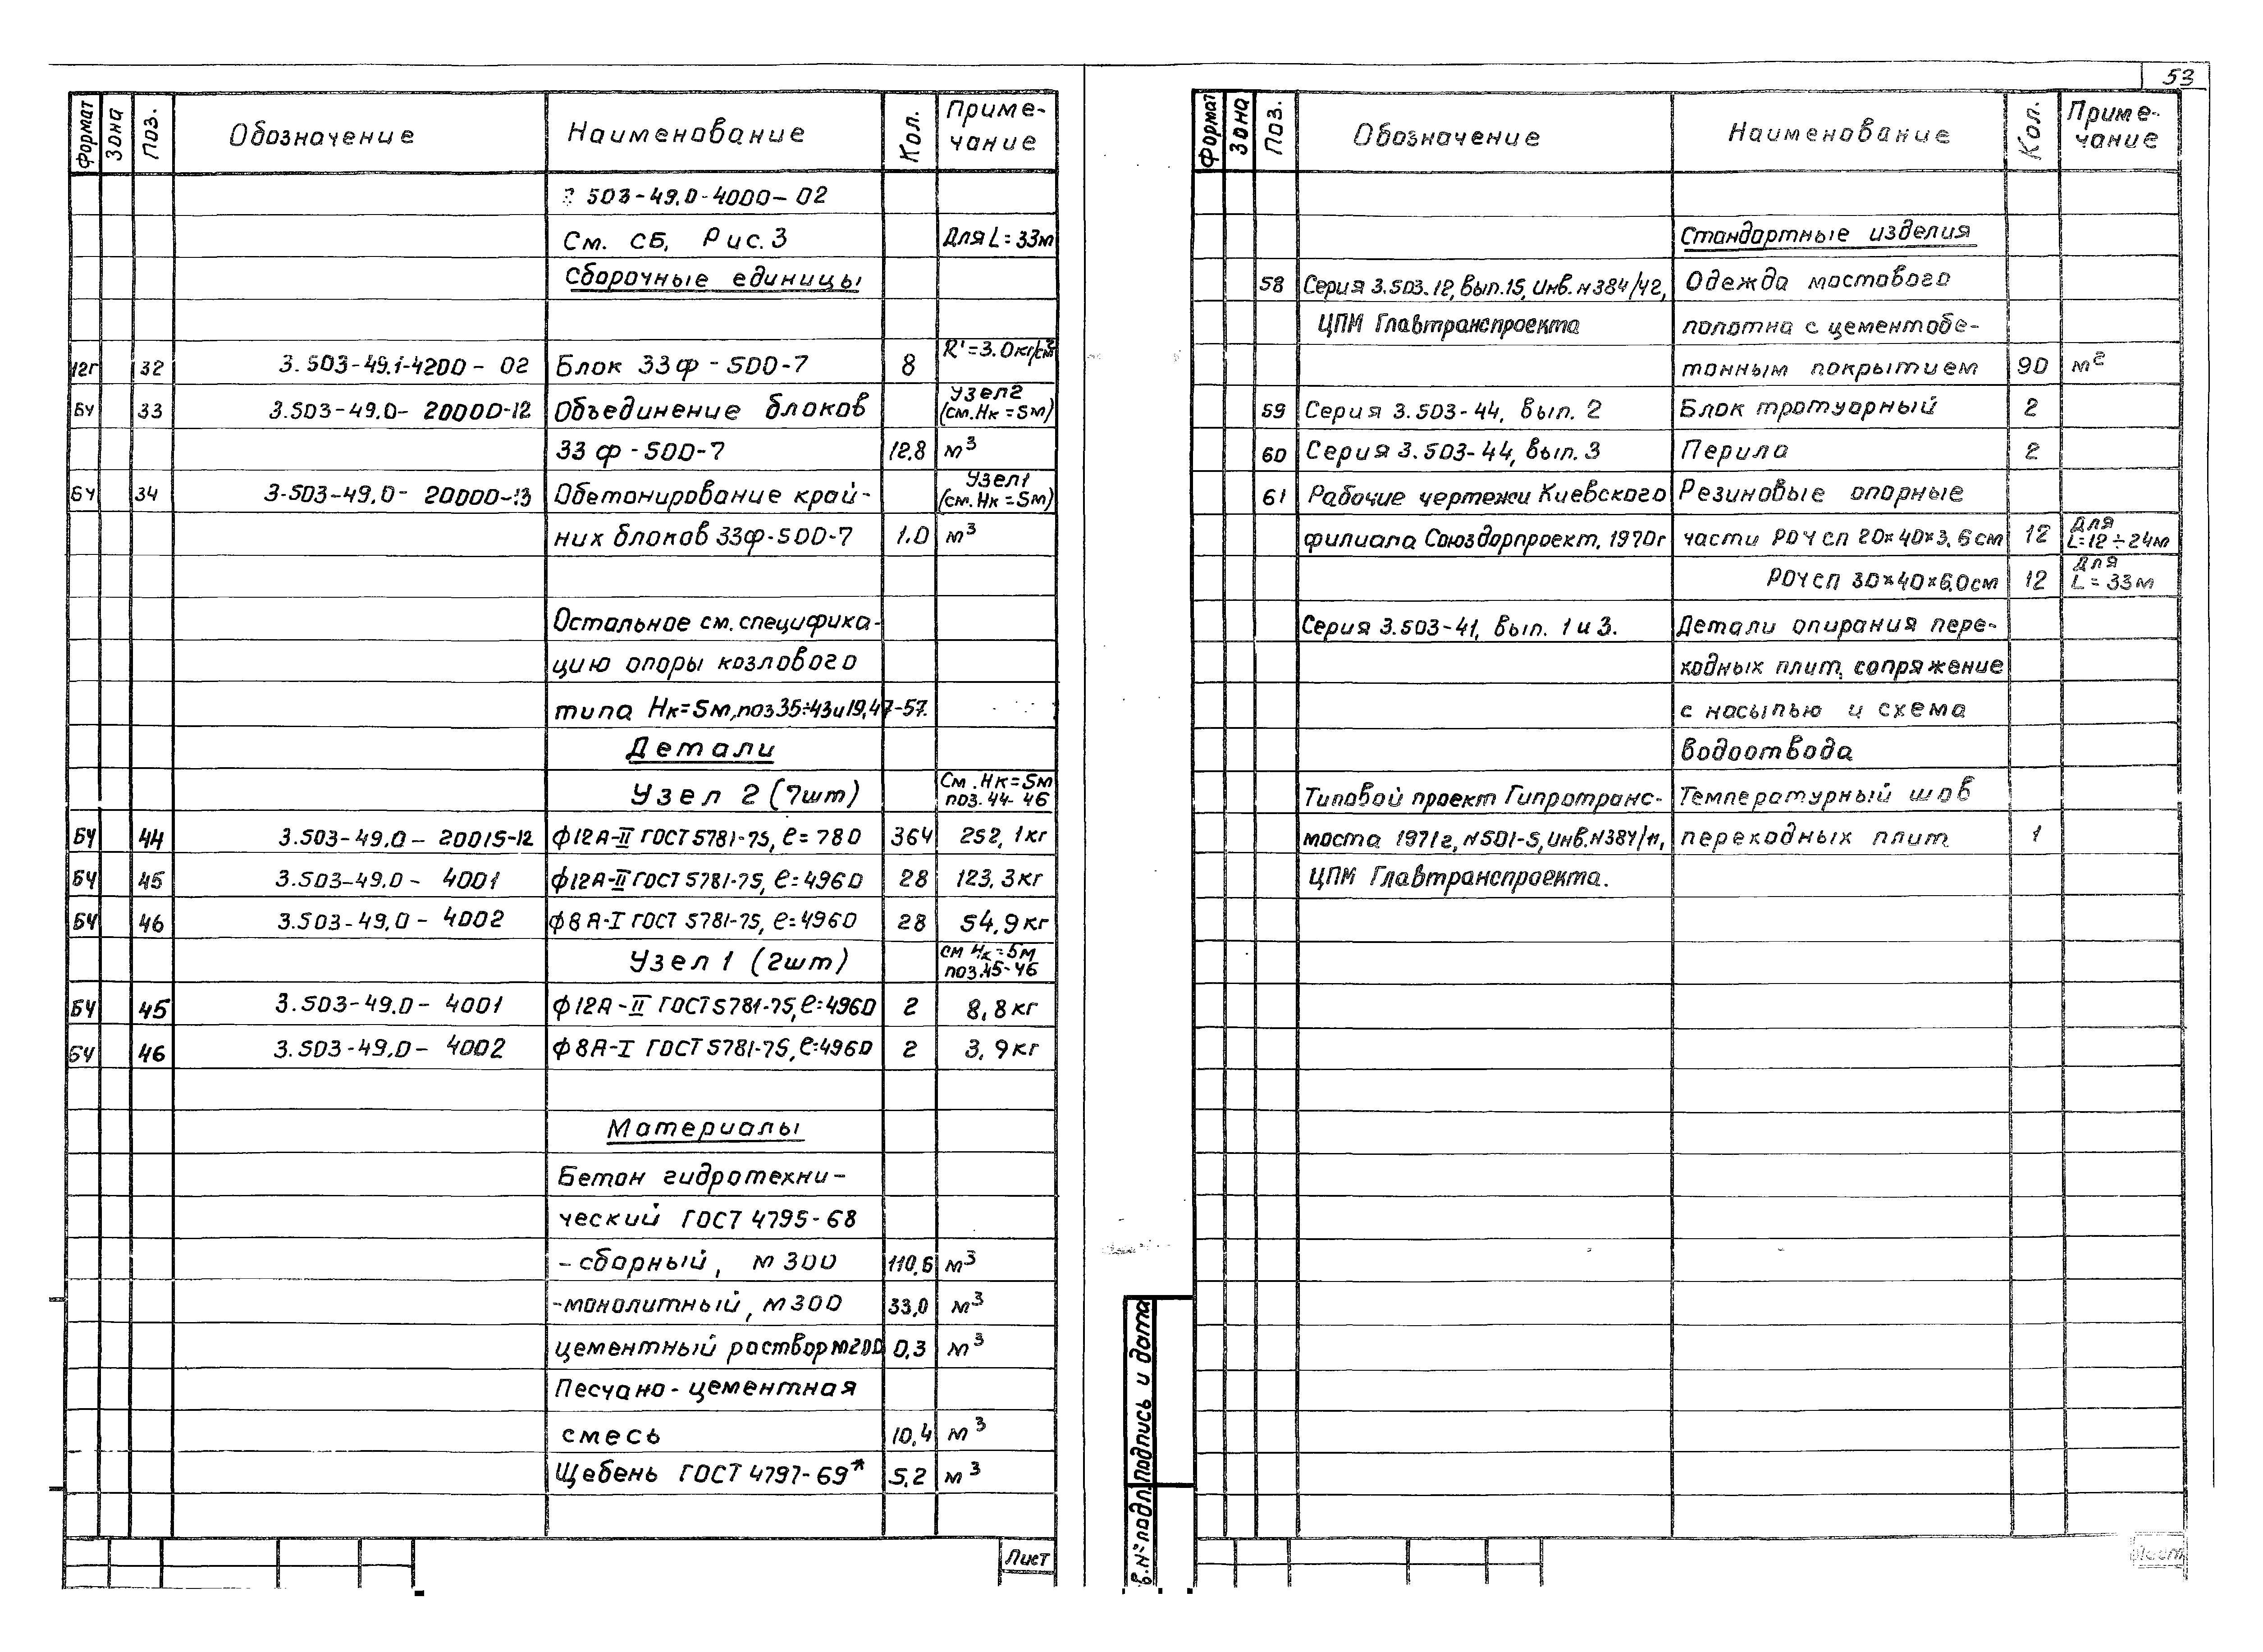 53
Формат Зона Поз. Обозначение Наименование Кол. Приме-
чание
503-49.0-4000-02
См. СБ, Рис. 3 Для L=33м
Сборочные единицы
R'=3.0кг/см²
12г 32 3.503-49.1-4200-02 Блок 33ф-500-7 8
Узел2
БЧ 33 3.503-49.0-20000-12 Объединение блоков (см.Нк=5м)
33ф-500-7 12,8 м³
Узел1
БЧ 34 3-503-49.0-20000-13 Обетонирование край- (см.Нк=5м)
них блоков 33ф-500-7 1.0 м³
Остальное см. специфика-
цию опоры козлового
типа Нк=5м, поз35÷43и19,47-57.
Детали
См.Нк=5м
Узел 2 (7шт) поз.44-46
БЧ 44 3.503-49.0-20015-12 ф12А-II ГОСТ 5781-75, ℓ=780 364 252,1кг
БЧ 45 3.503-49.0-4001 ф12А-II ГОСТ 5781-75, ℓ=4960 28 123,3кг
БЧ 46 3.503-49.0-4002 ф8А-I ГОСТ 5781-75, ℓ=4960 28 54,9кг
см Нк=5м
Узел 1 (2шт) поз.45-46
БЧ 45 3.503-49.0-4001 ф12А-II ГОСТ 5781-75, ℓ=4960 2 8,8кг
БЧ 46 3.503-49.0-4002 ф8А-I ГОСТ 5781-75, ℓ=4960 2 3,9кг
Материалы
Бетон гидротехни-
ческий ГОСТ 4795-68
-сборный, м300 110,6 м³
-монолитный, м300 33,0 м³
цементный раствор м200 0,3 м³
Песчано-цементная
смесь 10,4 м³
Щебень ГОСТ 4797-69* 5,2 м³
Лист
Формат Зона Поз. Обозначение Наименование Кол. Приме-
чание
Стандартные изделия
58 Серия 3.503.12, вып.15, инв. н384/42, Одежда мостового
ЦПМ Главтранспроекта полотна с цементобе-
тонным покрытием 90 м²
59 Серия 3.503-44, вып. 2 Блок тротуарный 2
60 Серия 3.503-44, вып. 3 Перила 2
61 Рабочие чертежи Киевского Резиновые опорные
Для
филиала Союздорпроект, 1970г части РОЧ сп 20×40×3,6см 12 L=12÷24м
Для
РОЧ сп 30×40×6,0см 12 L=33м
Серия 3.503-41, вып. 1 и 3. Детали опирания пере-
ходных плит, сопряжение
с насыпью и схема
водоотвода
Типовой проект Гипротранс- Температурный шов
моста 1971г, н501-5, инв.н384/11, переходных плит 1
ЦПМ Главтранспроекта.
Подпись и дата
в.№ подл.
Лист